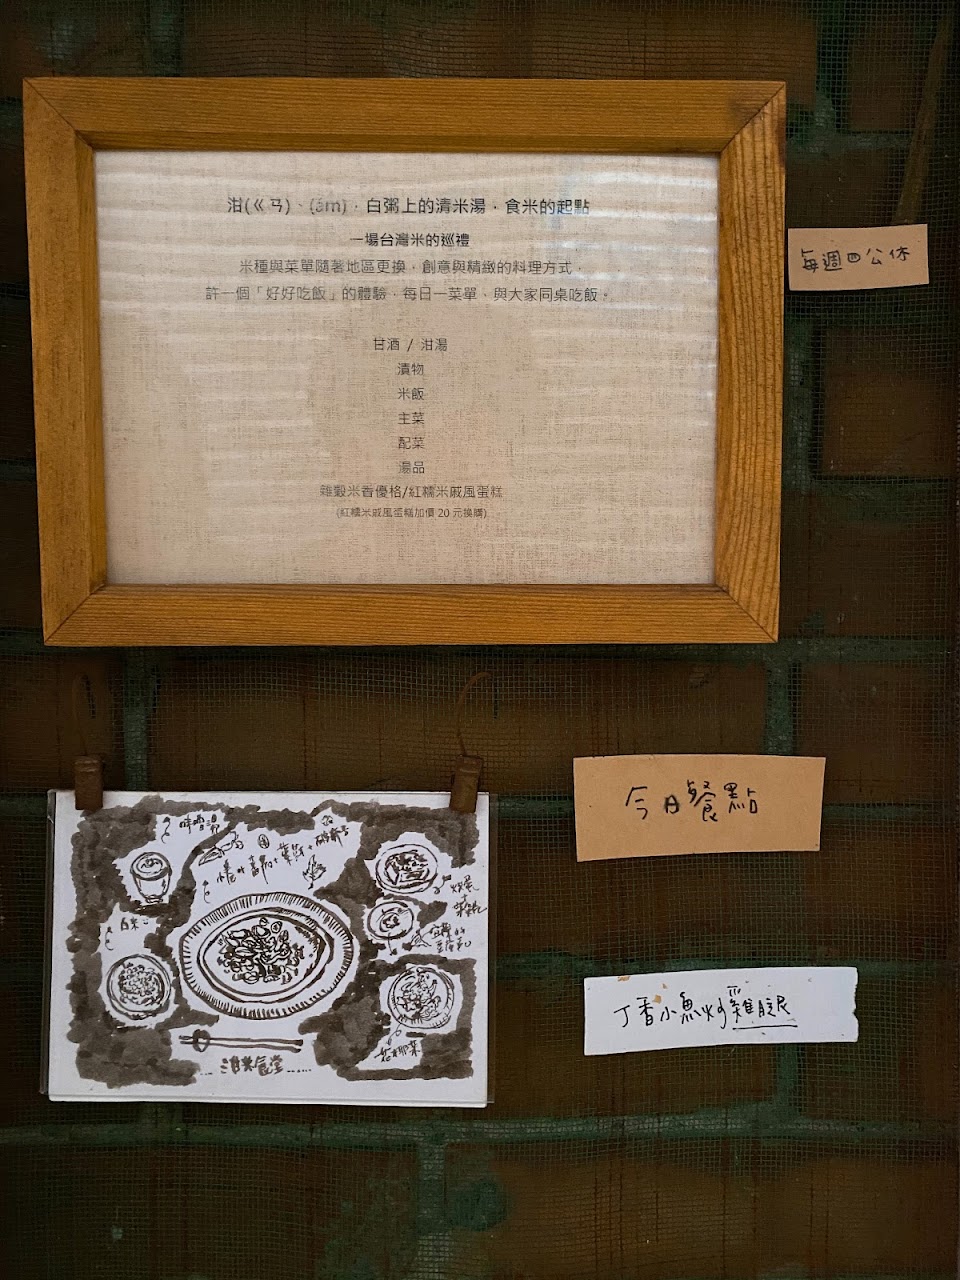 泔(ㄍㄢ)、(ám)，白粥上的清米湯，食米的起點
一場台灣米的巡禮
米種與菜單隨著地區更換，創意與精緻的料理方式，
許一個「好好吃飯」的體驗，每日一菜單、與大家同桌吃飯。
甘酒 / 泔湯
漬物
米飯
主菜
配菜
湯品
雜穀米香優格/紅糯米戚風蛋糕
(紅糯米戚風蛋糕加價 20 元換購)
每週四公休
今日餐點
丁香小魚炒雞腿
花椰菜